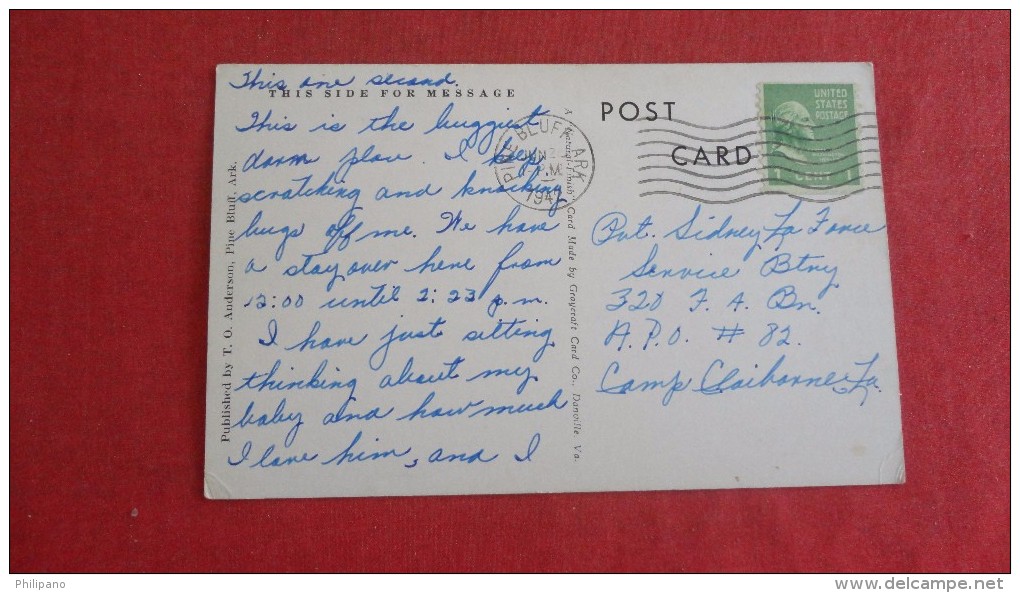 This one second.
THIS SIDE FOR MESSAGE
This is the buggiest
darn place. I keep
scratching and knocking
bugs off me. We have
a stay over here from
12:00 until 2:23 p.m.
I have just sitting
thinking about my
baby and how much
I love him, and I
Published by T. O. Anderson, Pine Bluff, Ark.
A "Natural-Finish" Card Made by Graycraft Card Co., Danville, Va.
POST
CARD
PINE BLUFF ARK
P.M.
1942
UNITED
STATES
POSTAGE
1 CENT 1
Pvt. Sidney La Force
Service Btry
320 F. A. Bn.
A.P.O. # 82.
Camp Claiborne La.
Philipano
www.delcampe.net